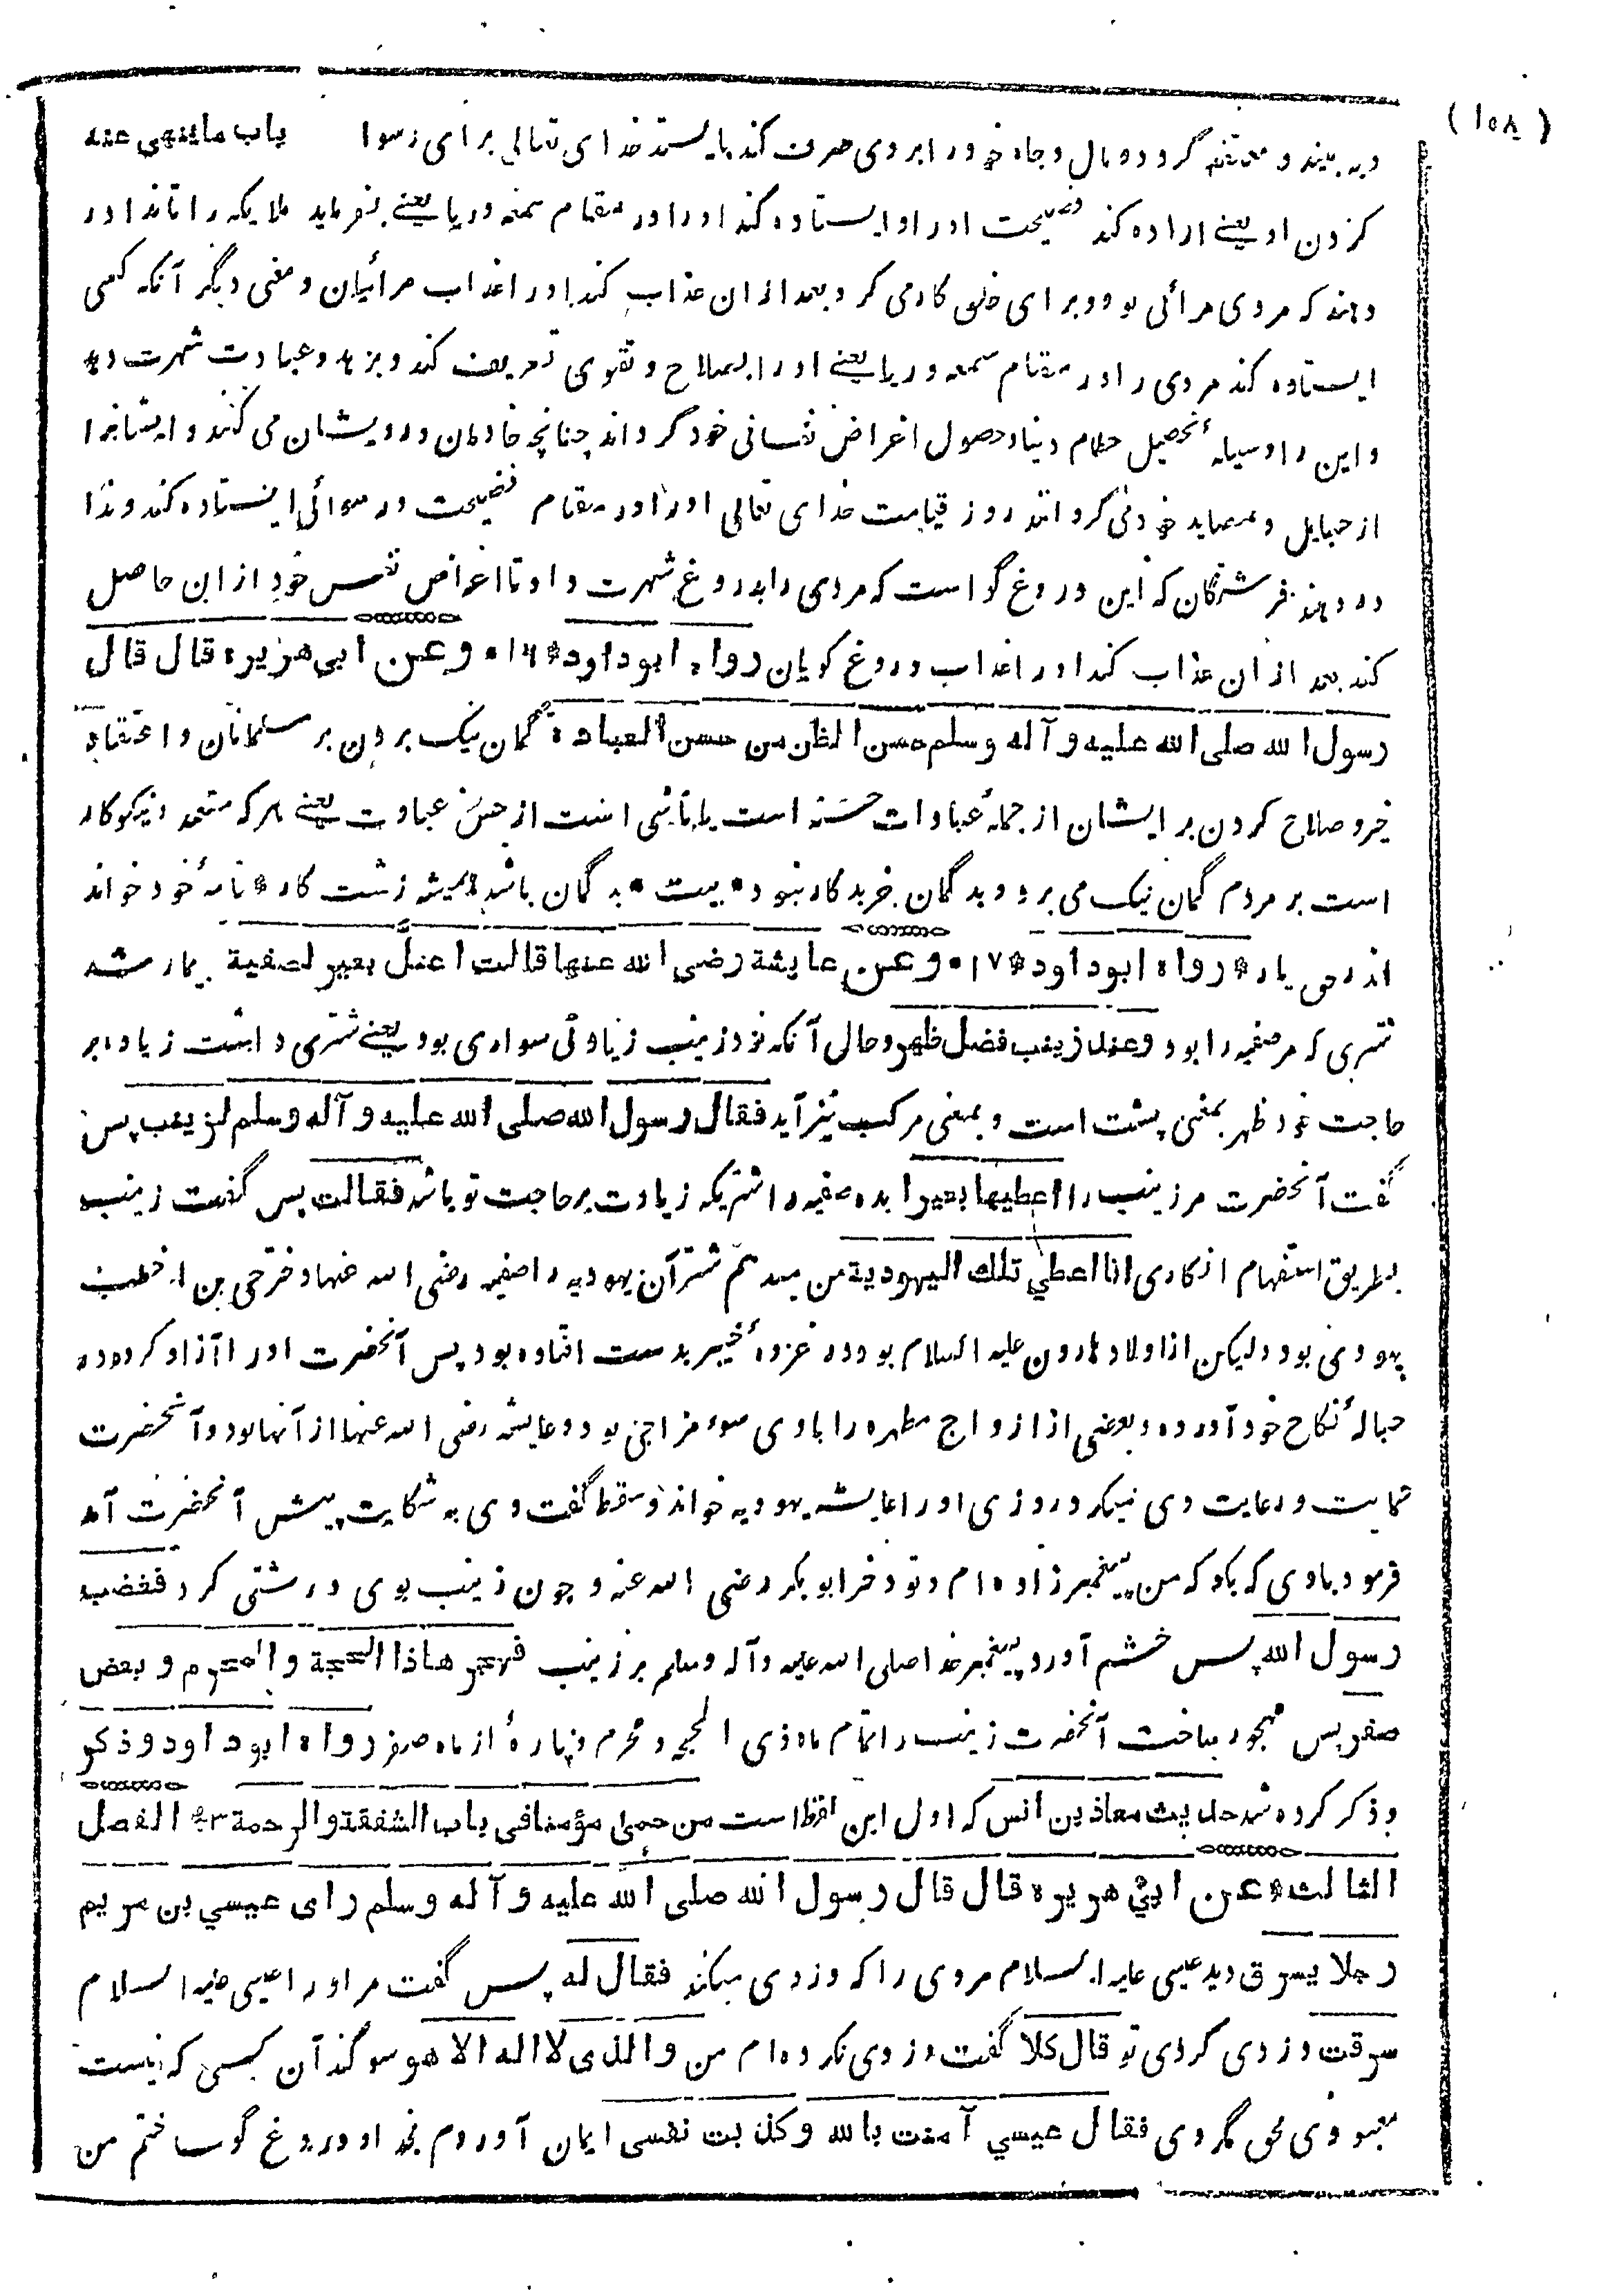 (١٥٨)
وبه بیند و معتقد گردد و مال و جاه خود را بروی صرف کند بایستد خدای تعالی برای رسوا باب ماینهی عنه
کردن او یعنے اراده کند فضیحت او را و ایستاده کند او را در مقام سمعه و ریا یعنے بفرماید ملایکه را تا ندا در
دهند که مردی مرائی بود و برای خلق کار می کرد و بعد از ان عذاب کند او را عذاب مرائیان و معنی دیگر آنکه کسی
ایستاده کند مردی را در مقام سمعه و ریا یعنے او را بصلاح و تقوی تعریف کند و بزهد و عبادت شهرت دهد
و این را وسیلهٔ تحصیل حطام دنیا و حصول اغراض نفسانی خود گرداند چنانچه خادمان درویشان می کنند و ایشانرا
از حبایل و مصاید خود می گردانند روز قیامت خدای تعالی او را در مقام فضیحت و رسوائی ایستاده کند و ندا
در دهند فرشتگان که این دروغ گو است که مردی را بدروغ شهرت داد تا اغراض نفس خود از ان حاصل
کند بعد از ان عذاب کند او را عذاب دروغ گویان رواه ابو داود * ١٦ * وعن ابی هریره قال قال
رسول الله صلی الله علیه و آله وسلم حسن الظن من حسن العبادة گمان نیک بردن بر مسلمانان و اعتقاد
خیر و صلاح کردن بر ایشان از جملهٔ عبادات حسنه است یا ناشی است از حسن عبادت یعنے هر که متعبد و نیکوکار
است بر مردم گمان نیک می برد و بد گمان جز بدکار نبود * بیت * بد گمان باشد همیشه زشت کار * نامهٔ خود خواند
اندر حق یار * رواه ابو داود * ١٧ * وعن عایشة رضی الله عنها قالت اعتل بعیر لصفیة بیمار شد
شتری که مر صفیه را بود وعند زینب فضل ظهر و حالی آنکه نزد زینب زیادتی سواری بود یعنے شتری داشت زیاده بر
حاجت خود ظهر بمعنی پشت است و بمعنی مرکب نیز آید فقال رسول الله صلی الله علیه و آله وسلم لزینب پس
گفت آنحضرت مر زینب را اعطیها بعیرا بده صفیه را شتریکه زیادت بر حاجت تو باشد فقالت پس گفت زینب
بطریق استفهام انکاری انا اعطي تلك الیهودیة من میدهم شتر آن یهودیه را صفیه رضی الله عنها دختر حی بن اخطب
یهودی بود ولیکن از اولاد هارون علیه السلام بود در غزوهٔ خیبر بدست افتاده بود پس آنحضرت او را آزاد کرده در
حبالهٔ نکاح خود آورده و بعضی از ازواج مطهره را باوی سوء مزاجی بود و عایشه رضی الله عنها از آنها بود و آنحضرت
حمایت و رعایت وی میکرد روزی او را عایشه یهودیه خواند و سقط گفت وی به شکایت پیش آنحضرت آمد
فرمود باوی که بگو که من پیغمبرزاده ام و تو دختر ابو بکر رضی الله عنه و چون زینب بوی درشتی کرد فغضب
رسول الله پس خشم آورد پیغمبر خدا صلی الله علیه وآله وسلم بر زینب فهجر هاذا الحجة والمحرم و بعض
صفر پس مهجور ساخت آنحضرت زینب را تمام ماه ذی الحجه و محرم و پارهٔ از ماه صفر رواه ابو داود وذكر
و ذکر کرده شد حدیث معاذ بن انس که اول این لفظ است من حمی مؤمنا فی باب الشفقة والرحمة * الفصل
الثالث * عن ابی هریره قال قال رسول الله صلی الله علیه و آله وسلم رای عیسي بن مریم
رجلا یسرق دید عیسی علیه السلام مردی را که دزدی میکند فقال له پس گفت مر او را عیسی علیه السلام
سرقت دزدی کردی تو قال کلا گفت دزدی نکرده ام من والذی لا اله الا هو سوگند آن کسی که نیست
معبودی بحق مگر وی فقال عیسي آمنت بالله وکذبت نفسی ایمان آوردم بخدا و دروغ گو ساختم من